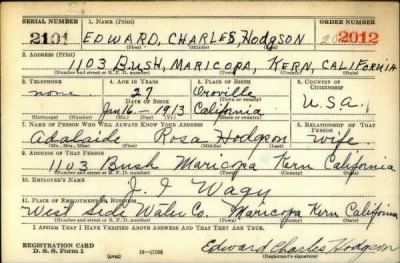 SERIAL NUMBER 1. NAME (Print) ORDER NUMBER
2101 EDWARD, CHARLES, Hodgson 2012
(First) (Middle) (Last)
2. ADDRESS (Print)
1103 BUSH, MARICOPA, KERN, CALIFORNIA
(Number and street or R. F. D. number) (Town) (County) (State)
3. TELEPHONE 4. AGE IN YEARS 5. PLACE OF BIRTH 6. COUNTRY OF CITIZENSHIP
none 27 Oroville
DATE OF BIRTH (Town or county)
Jan 16 - 1913 California U.S.A.
(Exchange) (Number) (Mo.) (Day) (Yr.) (State or country)
7. NAME OF PERSON WHO WILL ALWAYS KNOW YOUR ADDRESS 8. RELATIONSHIP OF THAT PERSON
Rosa Hodgson Wife
(Mr., Mrs., Miss) (First) (Middle) (Last)
9. ADDRESS OF THAT PERSON
1103 Bush Maricopa Kern California
(Number and street or R. F. D. number) (Town) (County) (State)
10. EMPLOYER'S NAME
J. J. Wagy
11. PLACE OF EMPLOYMENT OR BUSINESS
West Side Water Co. Maricopa Kern California
(Number and street or R. F. D. number) (Town) (County) (State)
I AFFIRM THAT I HAVE VERIFIED ABOVE ANSWERS AND THAT THEY ARE TRUE.
REGISTRATION CARD
D. S. S. Form 1 (over) Edward Charles Hodgson
(Registrant's signature)